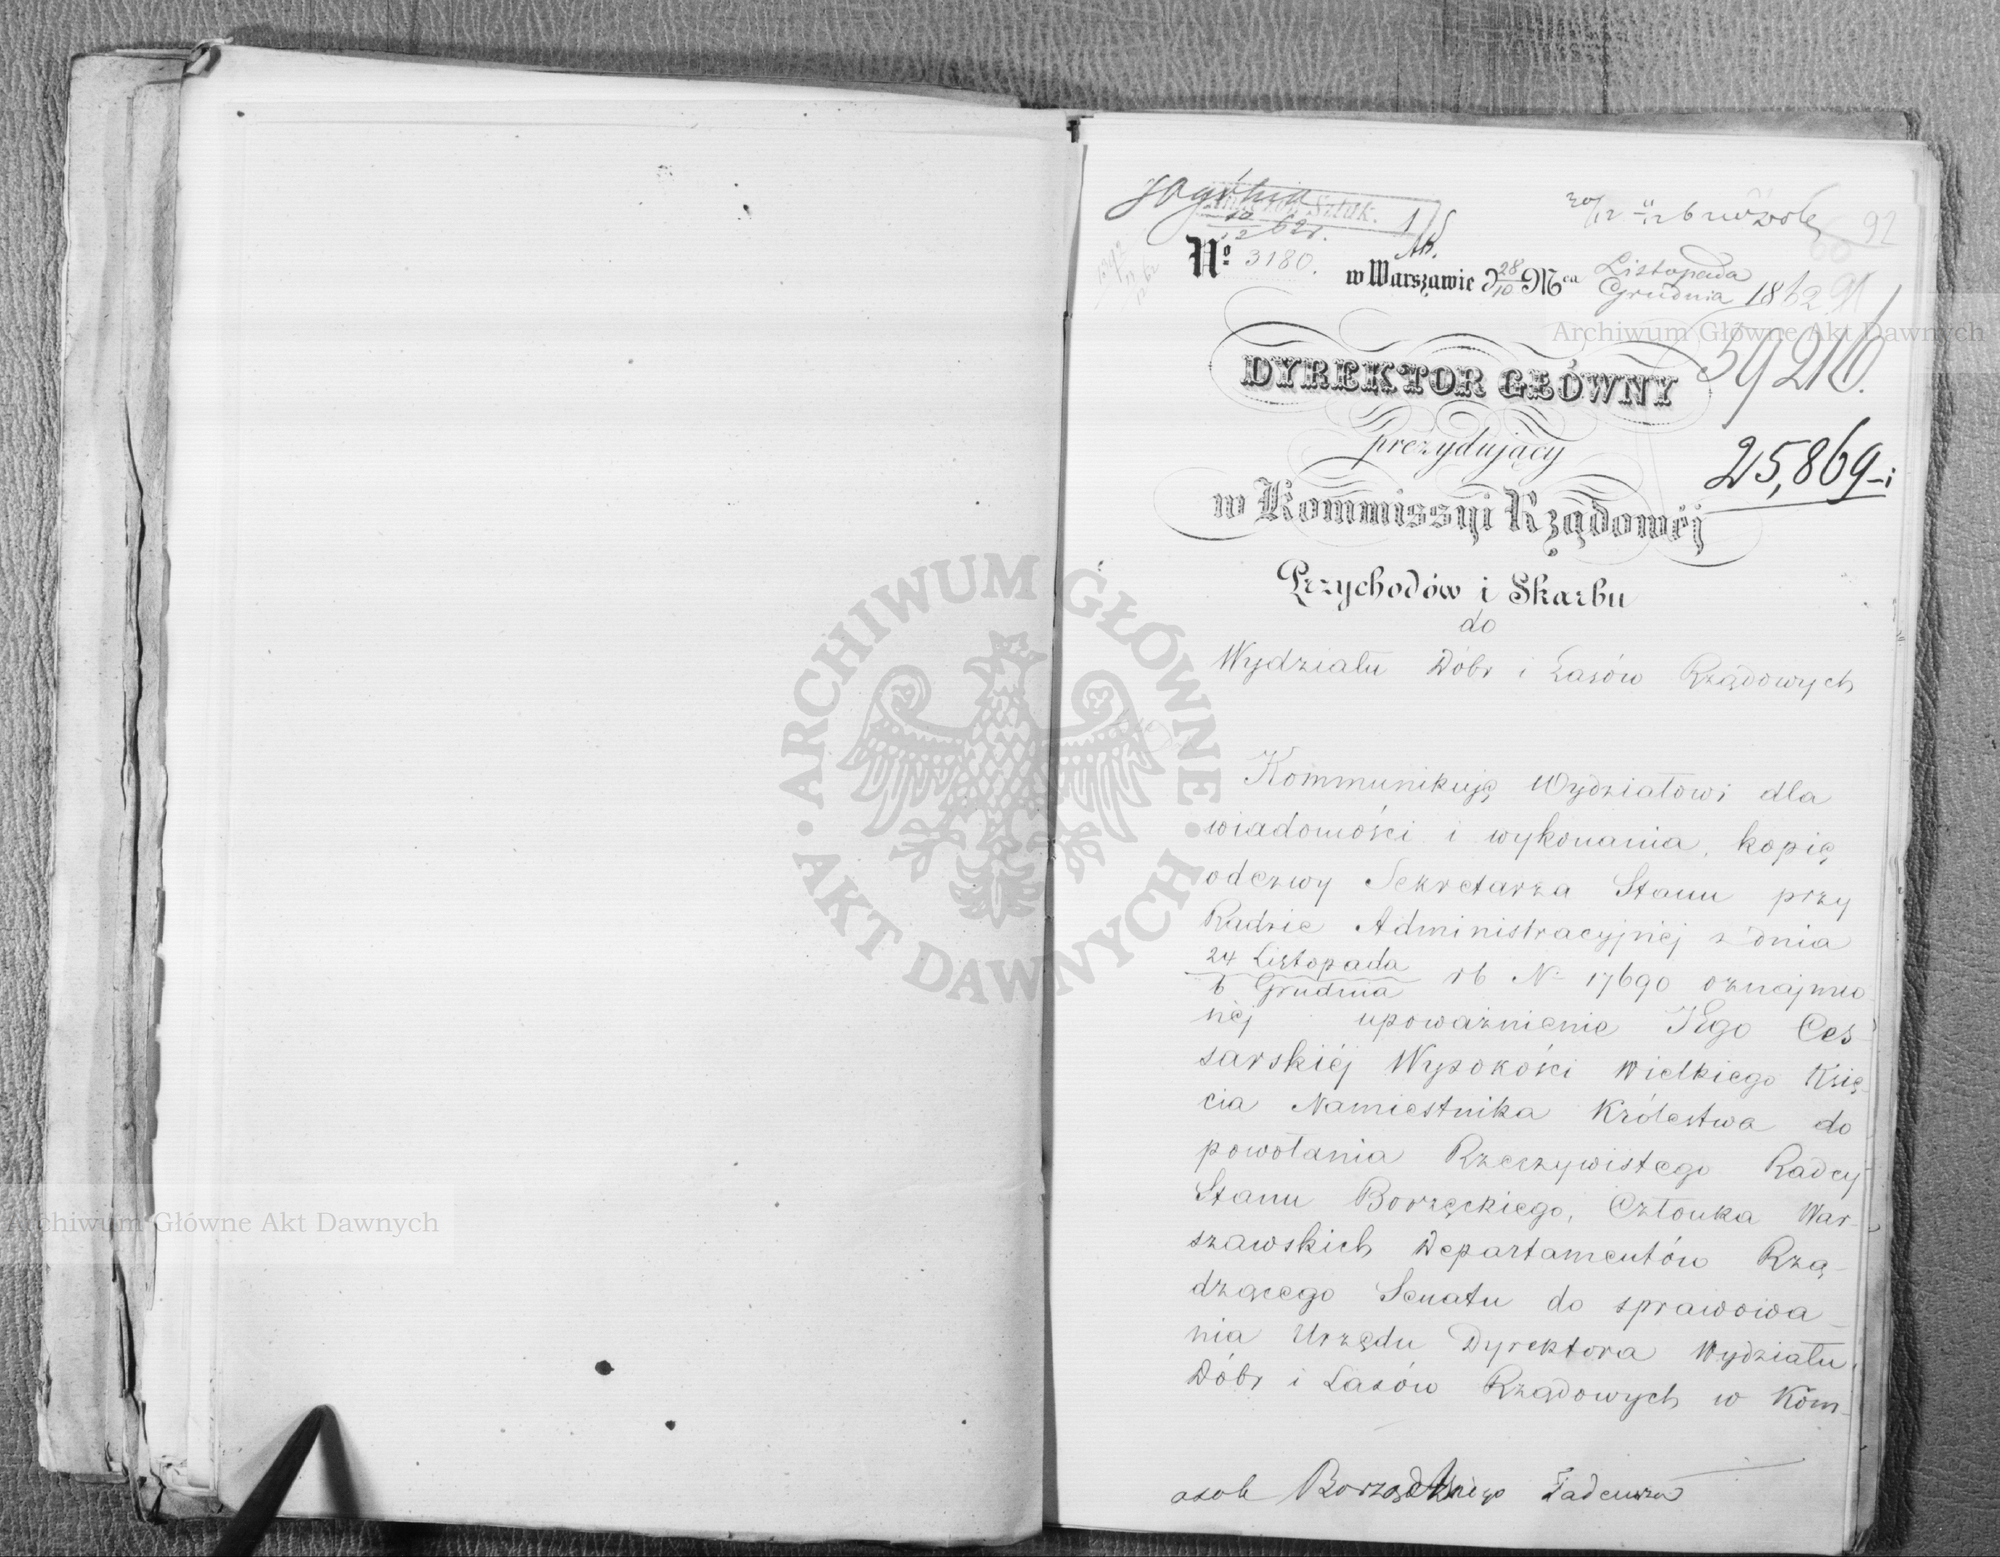 92
Nº 3180.
w Warszawie d 28/10 Mca Listopada/Grudnia 1862
59216.
DYREKTOR GŁÓWNY
prezydujący
25,869
w Kommissyi Rządowéj
Przychodów i Skarbu
do
Wydziału Dóbr i Lasów Rządowych
Kommunikuję Wydziałowi dla
wiadomości i wykonania, kopię
odezwy Sekretarza Stanu przy
Radzie Administracyjnéj z dnia
24 Listopada
6 Grudnia rb Nº 17690 oznajmio
néj upoważnienie Jego Ces-
sarskiéj Wysokości Wielkiego Księ-
cia Namiestnika Królestwa do
powołania Rzeczywistego Radcy
Stanu Borzęckiego, Członka War-
szawskich Departamentów Rzą-
dzącego Senatu do sprawowa-
nia Urzędu Dyrektora Wydziału
Dóbr i Lasów Rządowych w Kom-
osob Tadeusza
ARCHIWUM GŁÓWNE AKT DAWNYCH
Archiwum Główne Akt Dawnych
Archiwum Główne Akt Dawnych